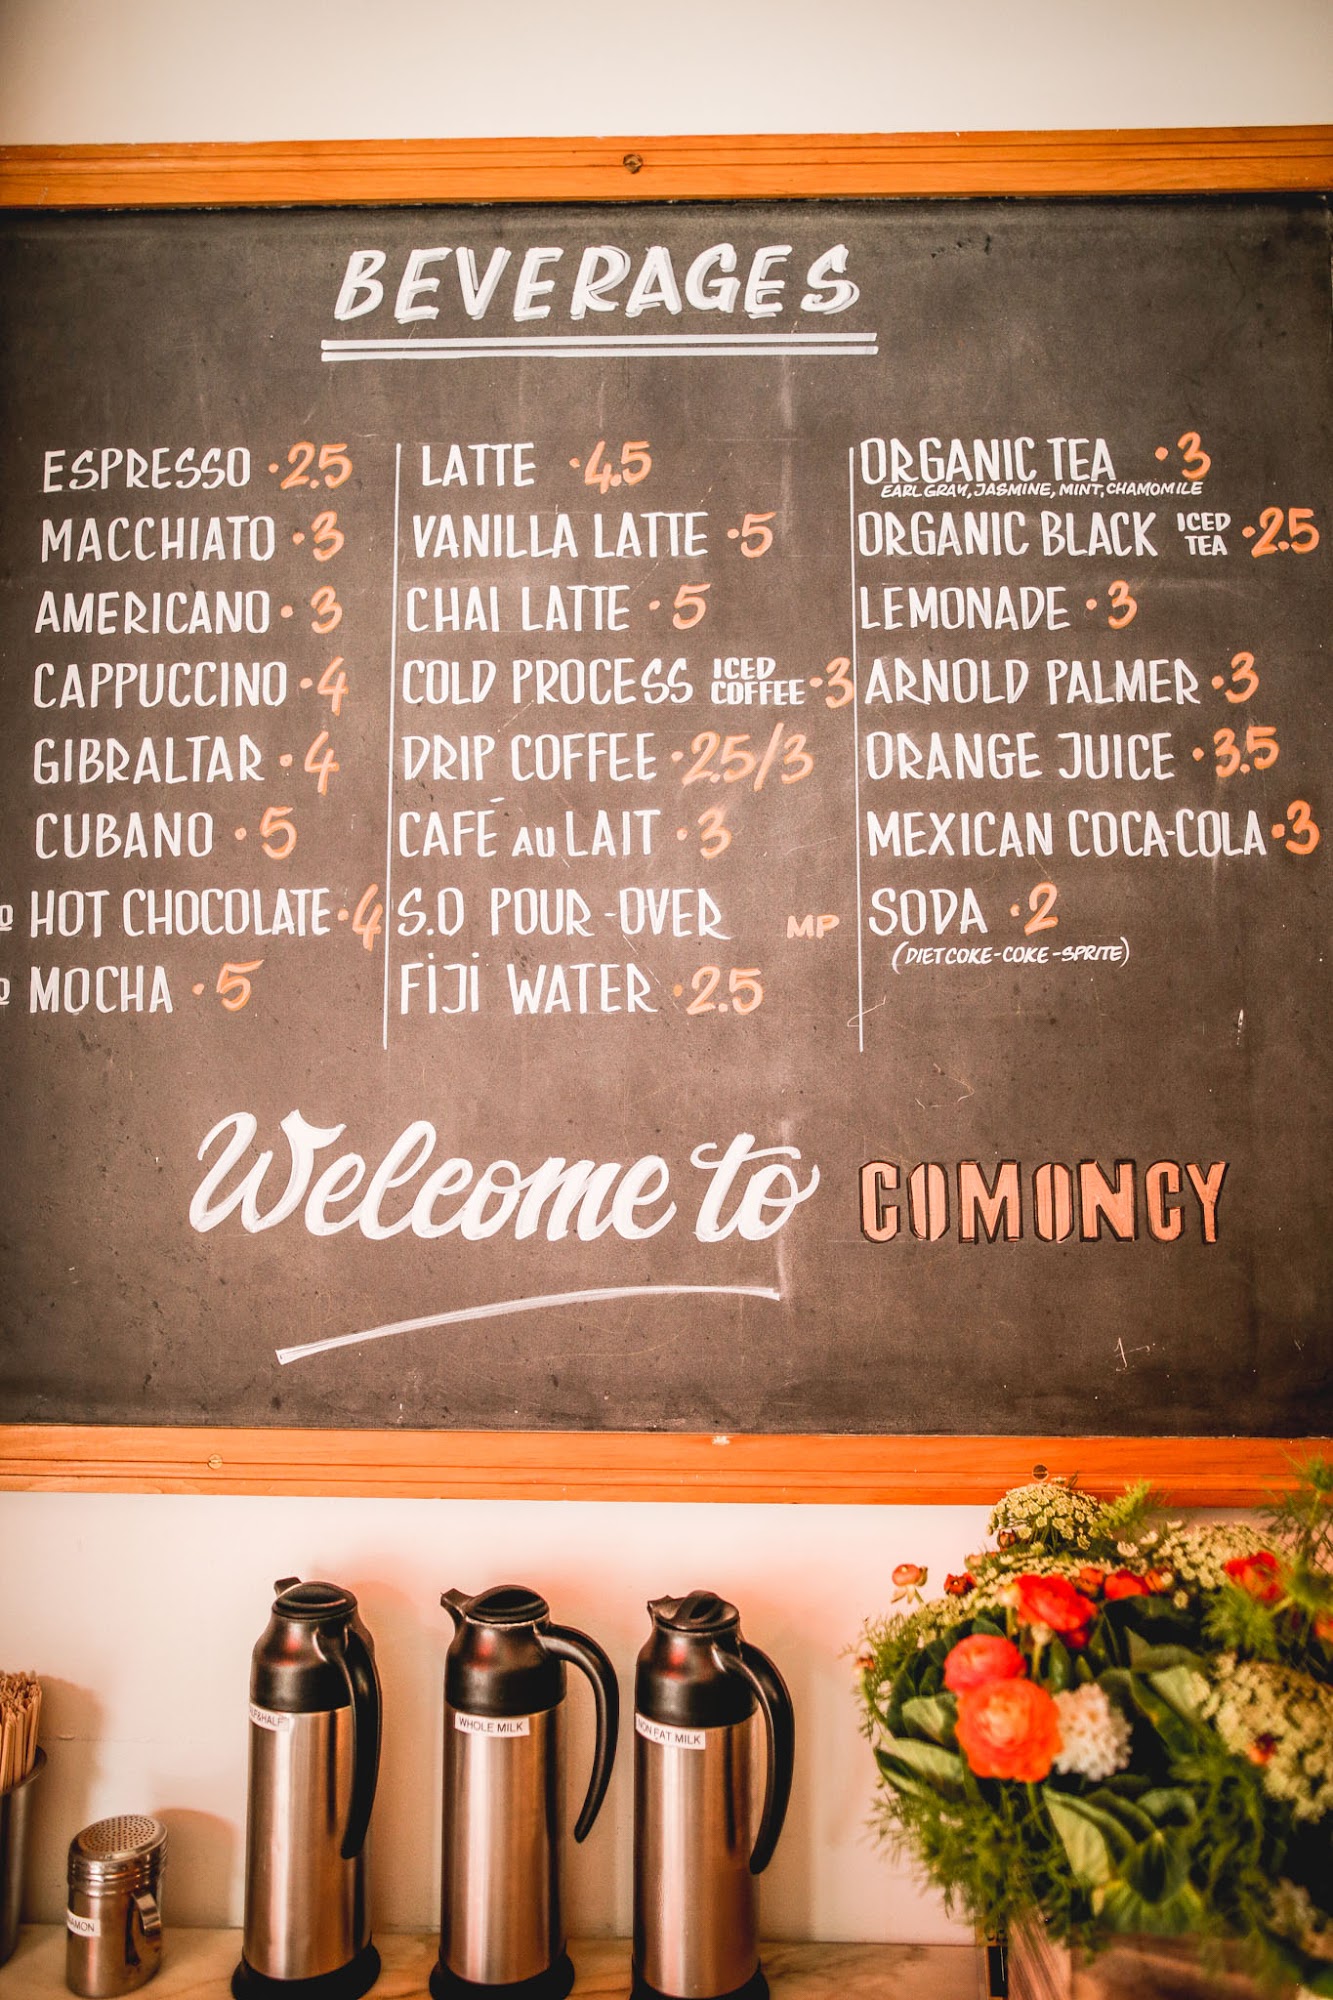 BEVERAGES
ESPRESSO · 2.5
MACCHIATO · 3
AMERICANO · 3
CAPPUCCINO · 4
GIBRALTAR · 4
CUBANO · 5
HOT CHOCOLATE · 4
MOCHA · 5
LATTE · 4.5
VANILLA LATTE · 5
CHAI LATTE · 5
COLD PROCESS ICED COFFEE · 3
DRIP COFFEE · 2.5/3
CAFÉ AU LAIT · 3
S.O POUR-OVER MP
FIJI WATER · 2.5
ORGANIC TEA · 3
EARL GRAY, JASMINE, MINT, CHAMOMILE
ORGANIC BLACK ICED TEA · 2.5
LEMONADE · 3
ARNOLD PALMER · 3
ORANGE JUICE · 3.5
MEXICAN COCA-COLA · 3
SODA · 2
(DIET COKE - COKE - SPRITE)
Welcome to COMONCY
WHOLE MILK
NON FAT MILK